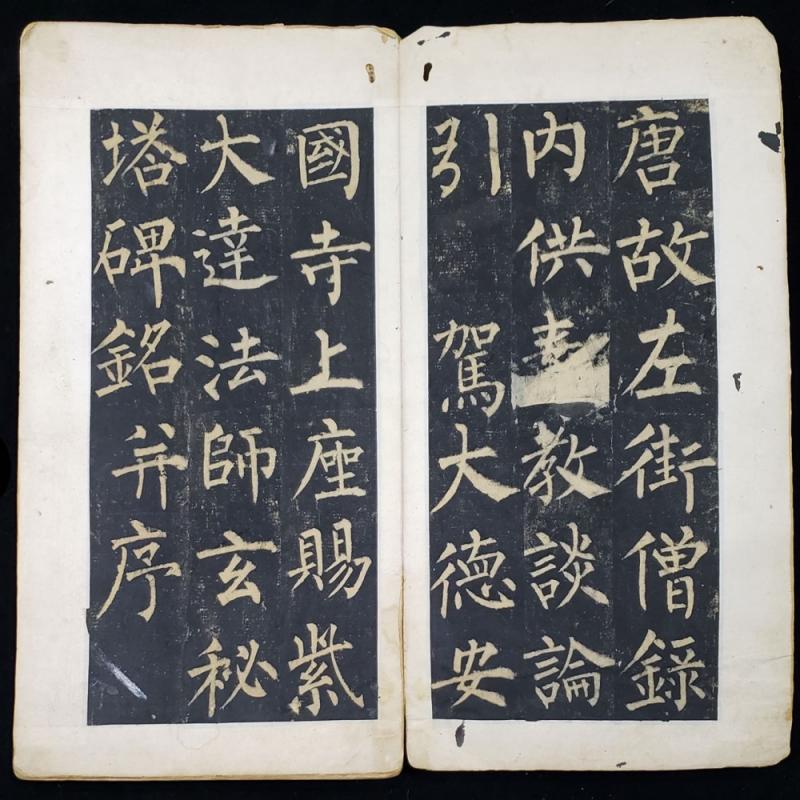 唐故左街僧錄
内供教談論
引 駕大德安
國寺上座賜紫
大達法師玄秘
塔碑銘并序